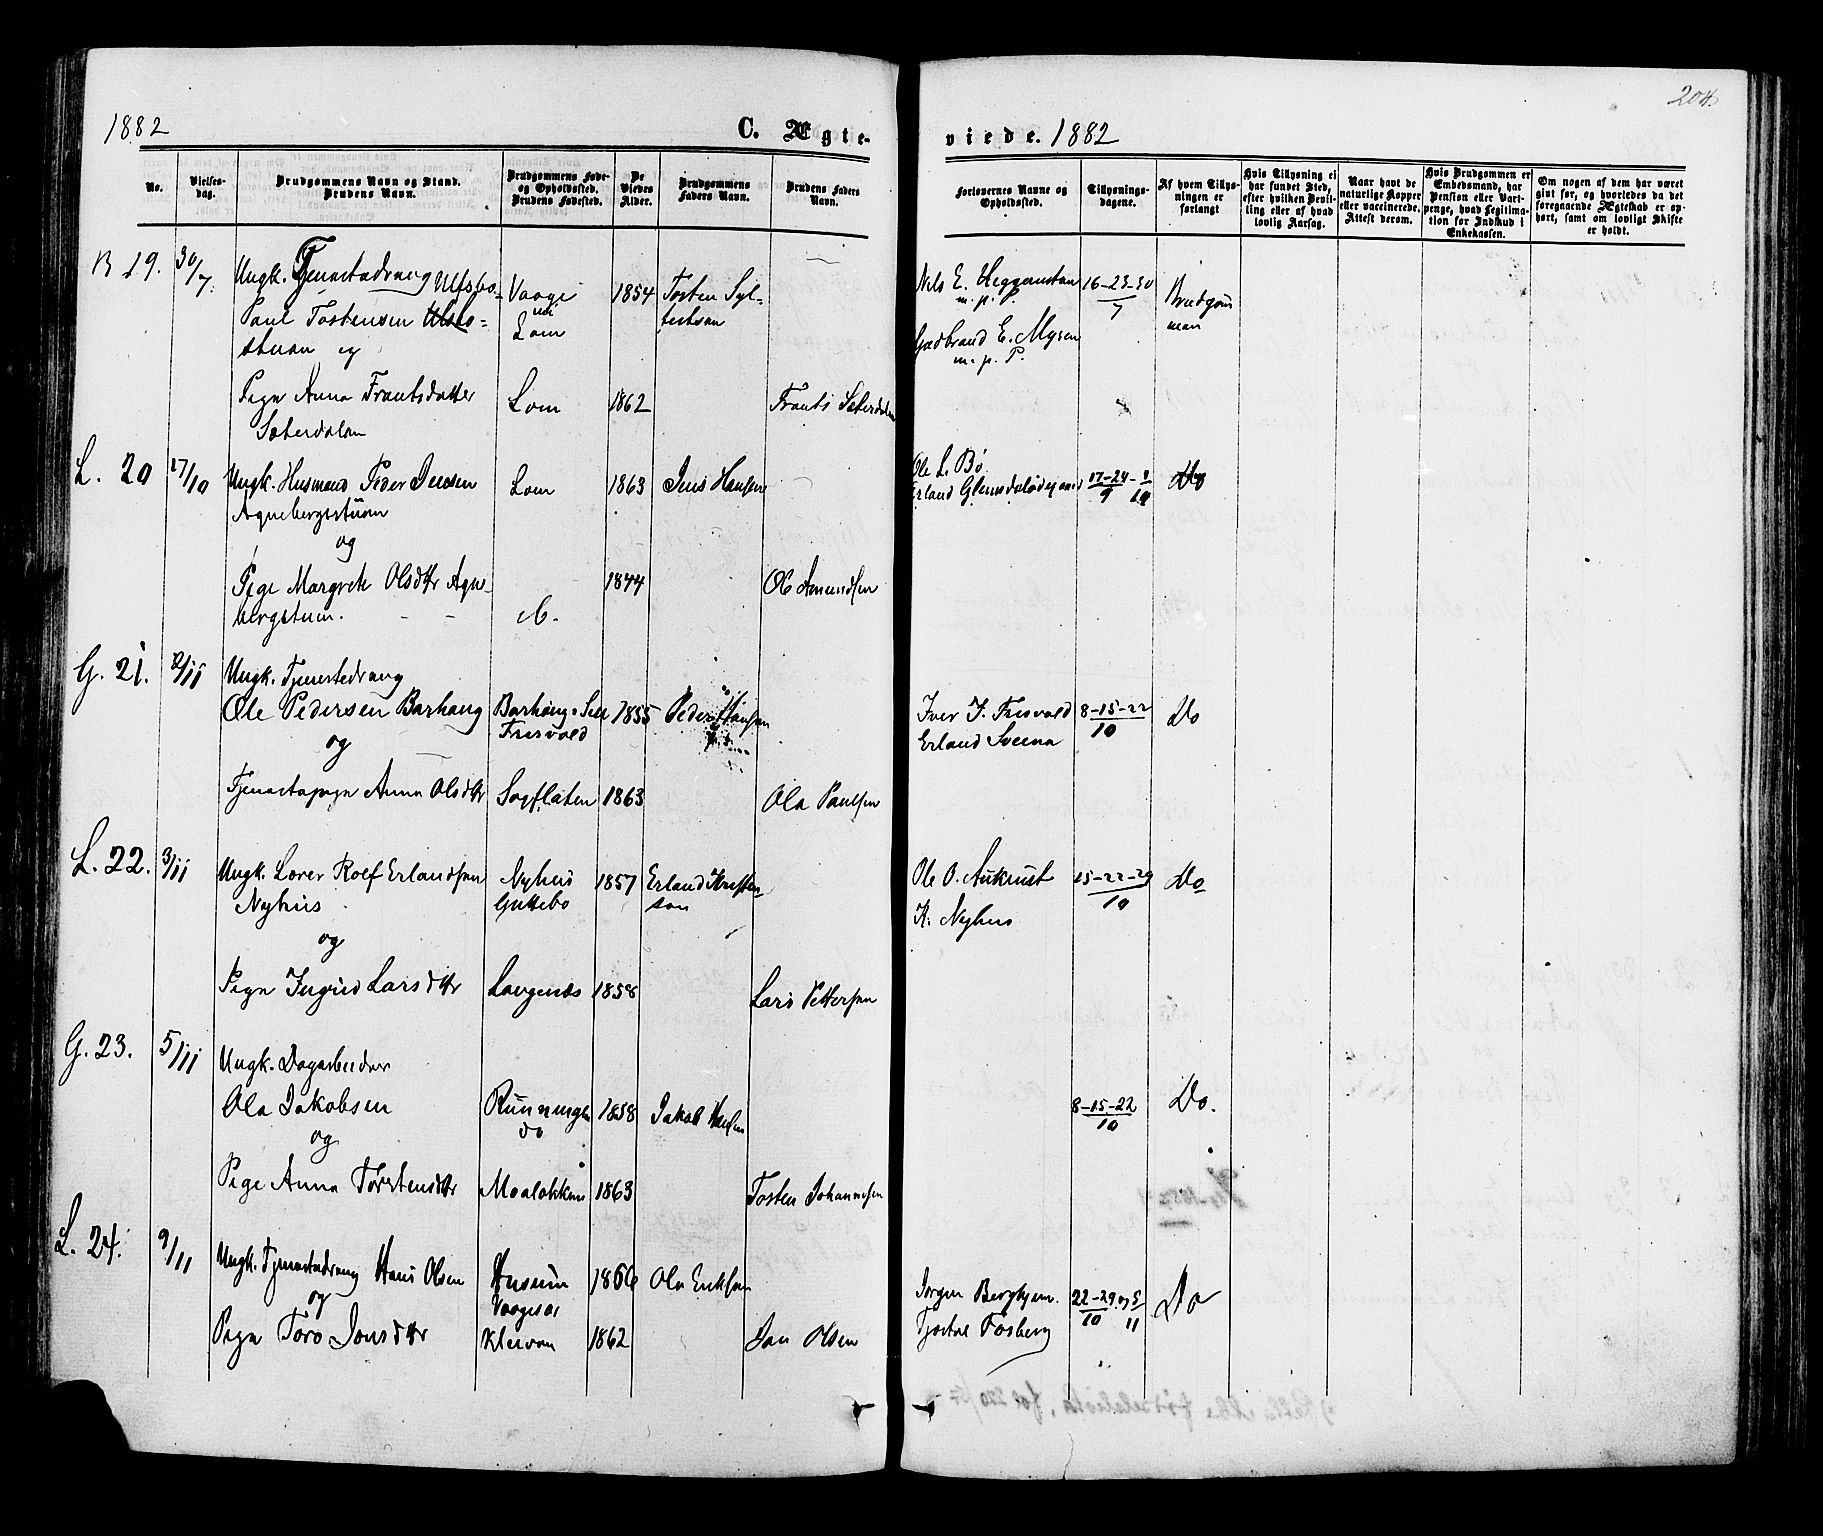 1882
C. Ægte-
No.
Vielses-
dag.
Brudgommens Navn og Stand.
Brudens Navn.
Brudgommens Føde-
og Opholdssted.
Brudens Fødested.
De
Viedes
Alder.
Brudgommens
Faders Navn.
Brudens Faders
Navn.
B 19. 30/7. Ungk. Tjenestedreng Ulfsbo-
Paul Tostensen
stuen og
Vaage
Lom
1854 Tosten Syl-
testuen
Pige Anna Frantsdatter
Sæterdalen
Lom 1862 Frants Sæterdalen
L. 20 17/10 Ungk. Husmand Peder Jensen
Agnebergsstuen
og
Lom 1863 Jens Hansen
Pige Margrete Olsdtr Agne-
bergstuen.
1844 Ole Amundsen
G. 21. 2/11 Ungk. Tjenestedreng
Ole Pedersen Barhaug
og
Barhaug
Frisvold
1855 Peder Hansen
Tjenestepige Anna Olsdtr Sagflaten 1863 Ola Paulsen
L. 22. 3/11 Ungk. Lærer Rolf Erlandsen
Nyhus
og
Nyhus
Guttebo
1857 Erland Kristen-
sen
Pige Ingrid Larsdtr Langenæs 1858 Lars Pettersen
G. 23. 5/11 Ungk. Dagarbeider
Ola Jakobsen
og
Runningen
do
1858 Jakob Hansen
Pige Anna Torstensdtr Maaløkken 1863 Tosten Johannesen
L. 24. 9/11 Ungk. Tjenestedreng Hans Olsen
og
Husum
Vaagesar
1856 Ola Eriksen
Pige Toro Jonsdtr Kleivan 1862 Jon Olsen
204
viede. 1882
Forlovernes Navne og
Opholdssted.
Tillysnings-
dagene.
Af hvem Tillys-
ningen er
forlangt
Hvis Tillysning ei
har fundet Sted,
efter hvilken Bevil-
ling eller af hvad
lovlig Aarsag.
Naar havt de
naturlige Kopper
eller vaccinerede.
Attest derom.
Hvis Brudgommen er
Embedsmand, har
Pension eller Vart-
penge, hvad Legitima-
tion for Indskud i
Enkekassen.
Om nogen af dem har været
gift før, og hvorledes da det
foregaaende Ægteskab er op-
hørt, samt om lovligt Skifte
er holdt.
Nels E. Heggerustuen
m. p. P.
Gudbrand E. Mysen
m. p. P.
16-23-30/7
Brudgom
men
Ole L. Bø
Erland Glemsdals
17-24/9 - 1/10 Do
Iver J. Frisvold
Erland Sveen
8-15-22/10 Do
Ole O. Aukrust
K. Nyhus
15-22-29/10 Do
8-15-22/10 Do.
Jørgen Berghjem.
Tjostol Fosberg
22-29/10 og 5/11 Do